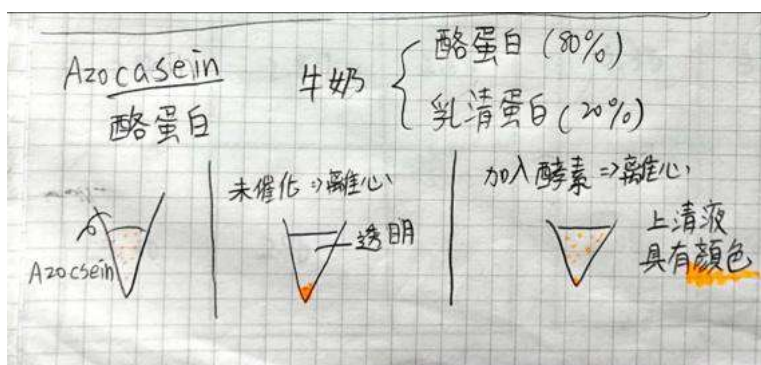 Azocasein
酪蛋白
牛奶
酪蛋白 (80%)
乳清蛋白 (20%)
Azocsein
未催化⇒離心
透明
加入酵素⇒離心
上清液
具有顏色